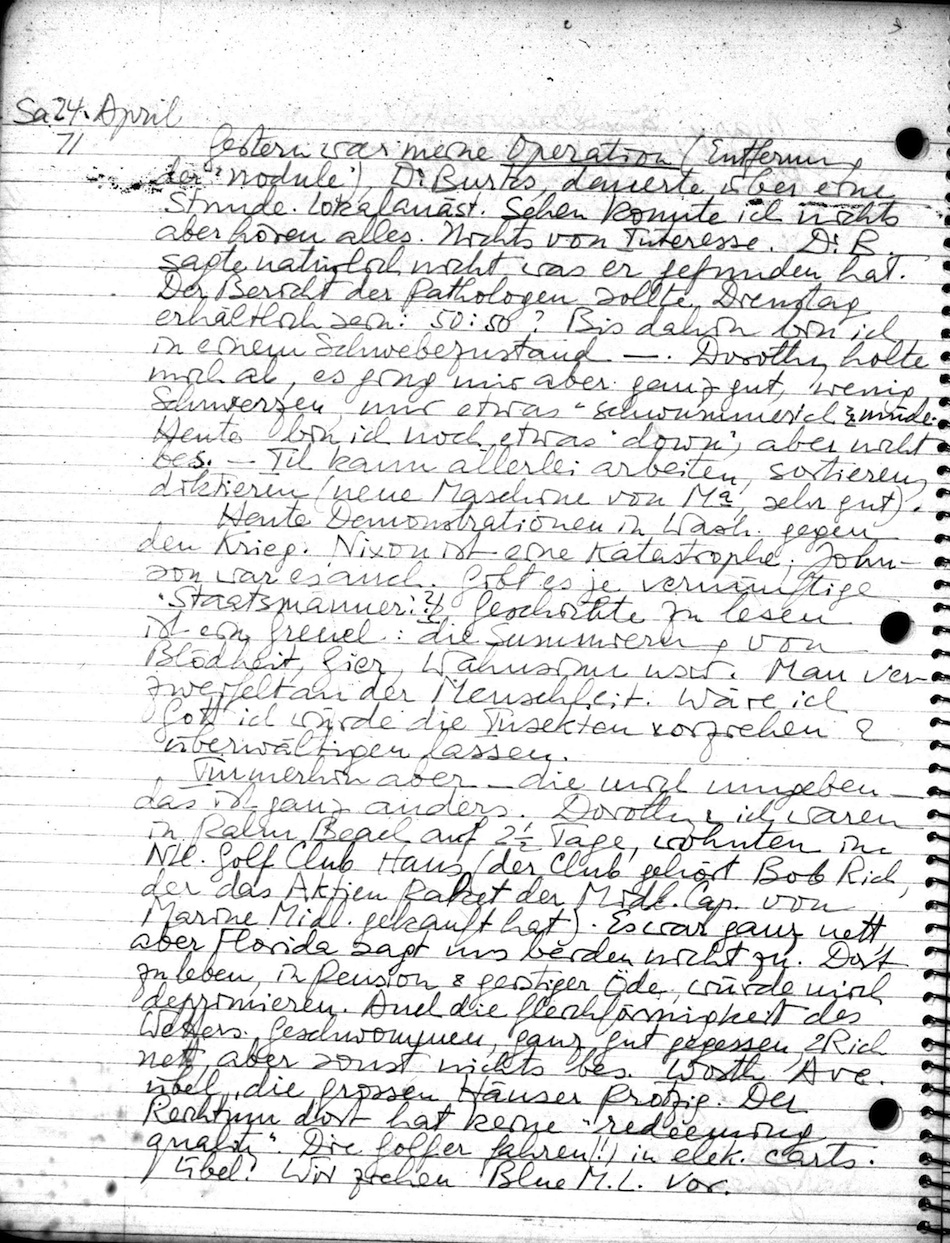 Sa 24. April
71
Gestern war meine Operation (Entfernung
der "nodule"), Dr Burks, dauerte über eine
Stunde. Lokalanäst. Sehen konnte ich nichts
aber hören alles. Nichts von Interesse. Dr B.
sagte natürlich nicht was er gefunden hat.
Der Bericht der Pathologen sollte Dienstag
erhältlich sein: 50:50? Bis dahin bin ich
in einem Schwebezustand —. Dorothy holte
mich ab, es ging mir aber ganz gut, wenig
Schmerzen, nur etwas "schwummerich" & müde.
Heute bin ich noch etwas "down", aber nicht
bes. — Ich kann allerlei arbeiten, sortieren,
diktieren (neue Maschine von Ma, sehr gut).
Heute Demonstrationen in Wash. gegen
den Krieg. Nixon ist eine Katastrophe. John-
son war es auch. Gibt es je vernünftige
"Staatsmänner"? Geschichte zu lesen
ist ein Greuel: die Summierung von
Blödheit, Gier, Wahnsinn usw. Man ver-
zweifelt an der Menschheit. Wäre ich
Gott ich würde die Insekten vorziehen &
überwältigen lassen.
Immerhin aber — die mich umgeben —
das ist ganz anders. Dorothy & ich waren
in Palm Beach auf 2½ Tage, wohnten im
Golf Club Haus (der Club gehört Bob Rich,
der das Aktien Paket der Midl. Cap. von
Marine Midl. gekauft hat). Es war ganz nett
aber Florida sagt uns beiden nicht zu. Dort
zu leben, in Pension & geistiger Öde, würde mich
deprimieren. Auch die Gleichförmigkeit des
Wetters. Geschwommen, ganz gut gegessen, & Rich
nett, aber sonst nichts bes. Worth Ave.
übel, die grossen Häuser protzig. Der
Reichtum dort hat keine "redeeming
quality". Die Golfer fahren(!!) in elek. carts.
Übel! Wir ziehen Blue M. L. vor.